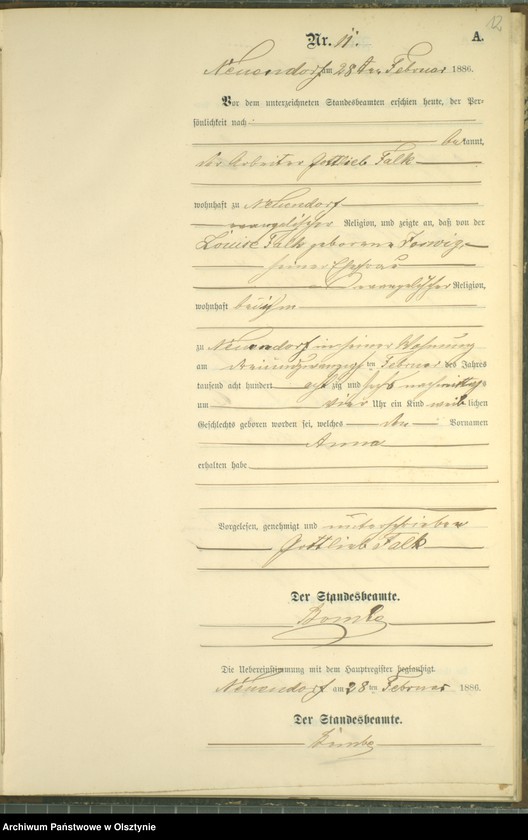 12
Nr. 11. A.
Neuendorf am 28ten Februar 1886.
Vor dem unterzeichneten Standesbeamten erschien heute, der Per-
sönlichkeit nach
bekannt,
der Arbeiter Gottlieb Falk
wohnhaft zu Neuendorf
evangelischer Religion, und zeigte an, daß von der
Louise Falk geborene
seiner Ehefrau
evangelischer Religion,
wohnhaft bei ihm
zu Neuendorf in seiner Wohnung
am dreiundzwanzigsten Februar des Jahres
tausend acht hundert achtzig und sechs nachmittags
um vier Uhr ein Kind weiblichen
Geschlechts geboren worden sei, welches den Vornamen
Anna
erhalten habe
Vorgelesen, genehmigt und unterschrieben
Gottlieb Falk
Der Standesbeamte.
Die Uebereinstimmung mit dem Hauptregister beglaubigt.
Neuendorf am 28ten Februar 1886.
Der Standesbeamte.
Archiwum Państwowe w Olsztynie